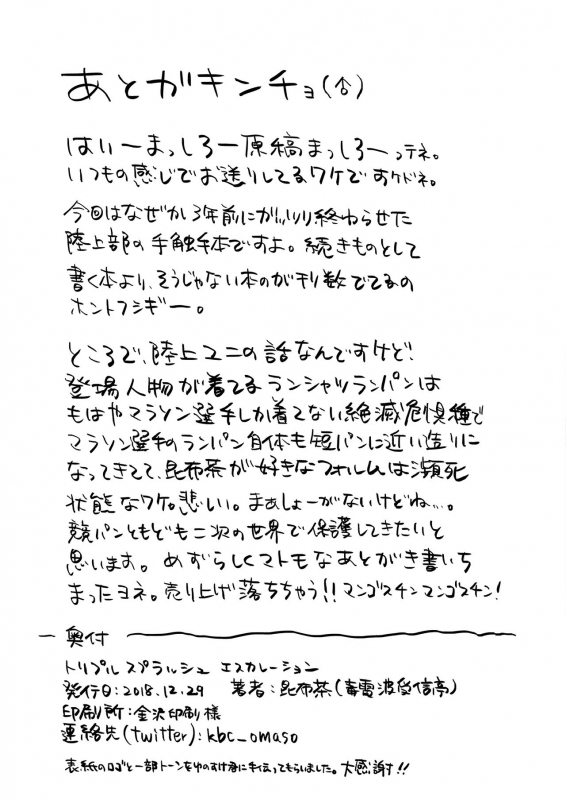 あとがキンチョ(♂)
はいーまっしろー原稿まっしろーってネ。
いつもの感じでお送りしてるワケですケドネ。
今回はなぜか3年前にガッツリ終わらせた
陸上部の手触手本ですよ。続きものとして
書く本より、そうじゃない本のが刊数でてるの
ホントフシギー。
ところで、陸上ユニの話なんですけど!
登場人物が着てるランシャツランパンは
もはやマラソン選手しか着てない絶滅危惧種で
マラソン選手のランパン自体も短パンに近い造りに
なってきてて、昆布茶が好きなフォルムは瀕死
状態なワケ。悲しい。まぁしょーがないけどね…。
競パンともども二次の世界で保護してきたいと
思います。めずらしくマトモなあとがき書いち
まったヨネ。売り上げ落ちちゃう!!マンゴスチンマンゴスチン!
奥付
トリプルスプラッシュ エスカレーション
発行日:2018.12.29 著者:昆布茶(毒電波受信亭)
印刷所:金沢印刷様
連絡先(twitter):kbc_omaso
表紙のロゴと一部トーンをゆのすけ君に手伝ってもらいました。大感謝!!